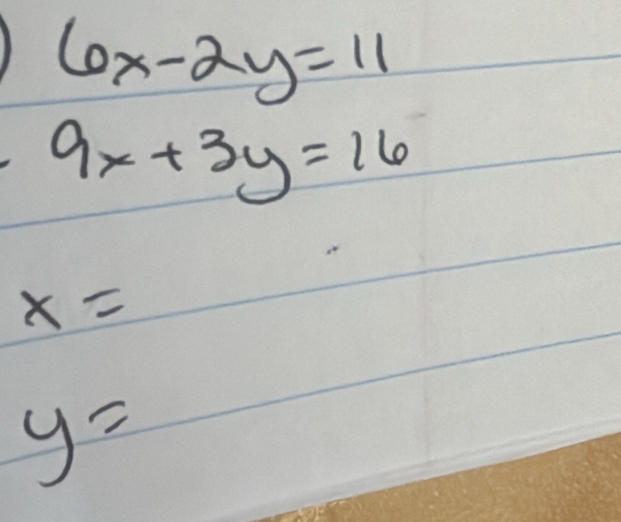 ) 6x-2y=11
- 9x+3y=16
x=
y=